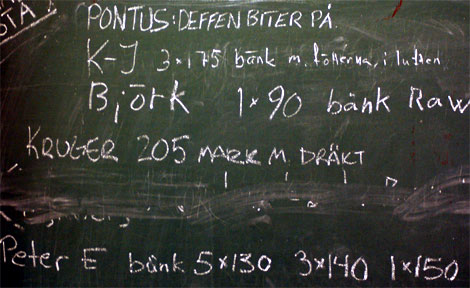 STA
PONTUS: DEFFEN BITER PÅ.
K-J 3×175 bänk m. fötterna i luften
Björk 1×90 bänk Raw
KRUGER 205 MARK M. DRÄKT
Peter E bänk 5×130 3×140 1×150